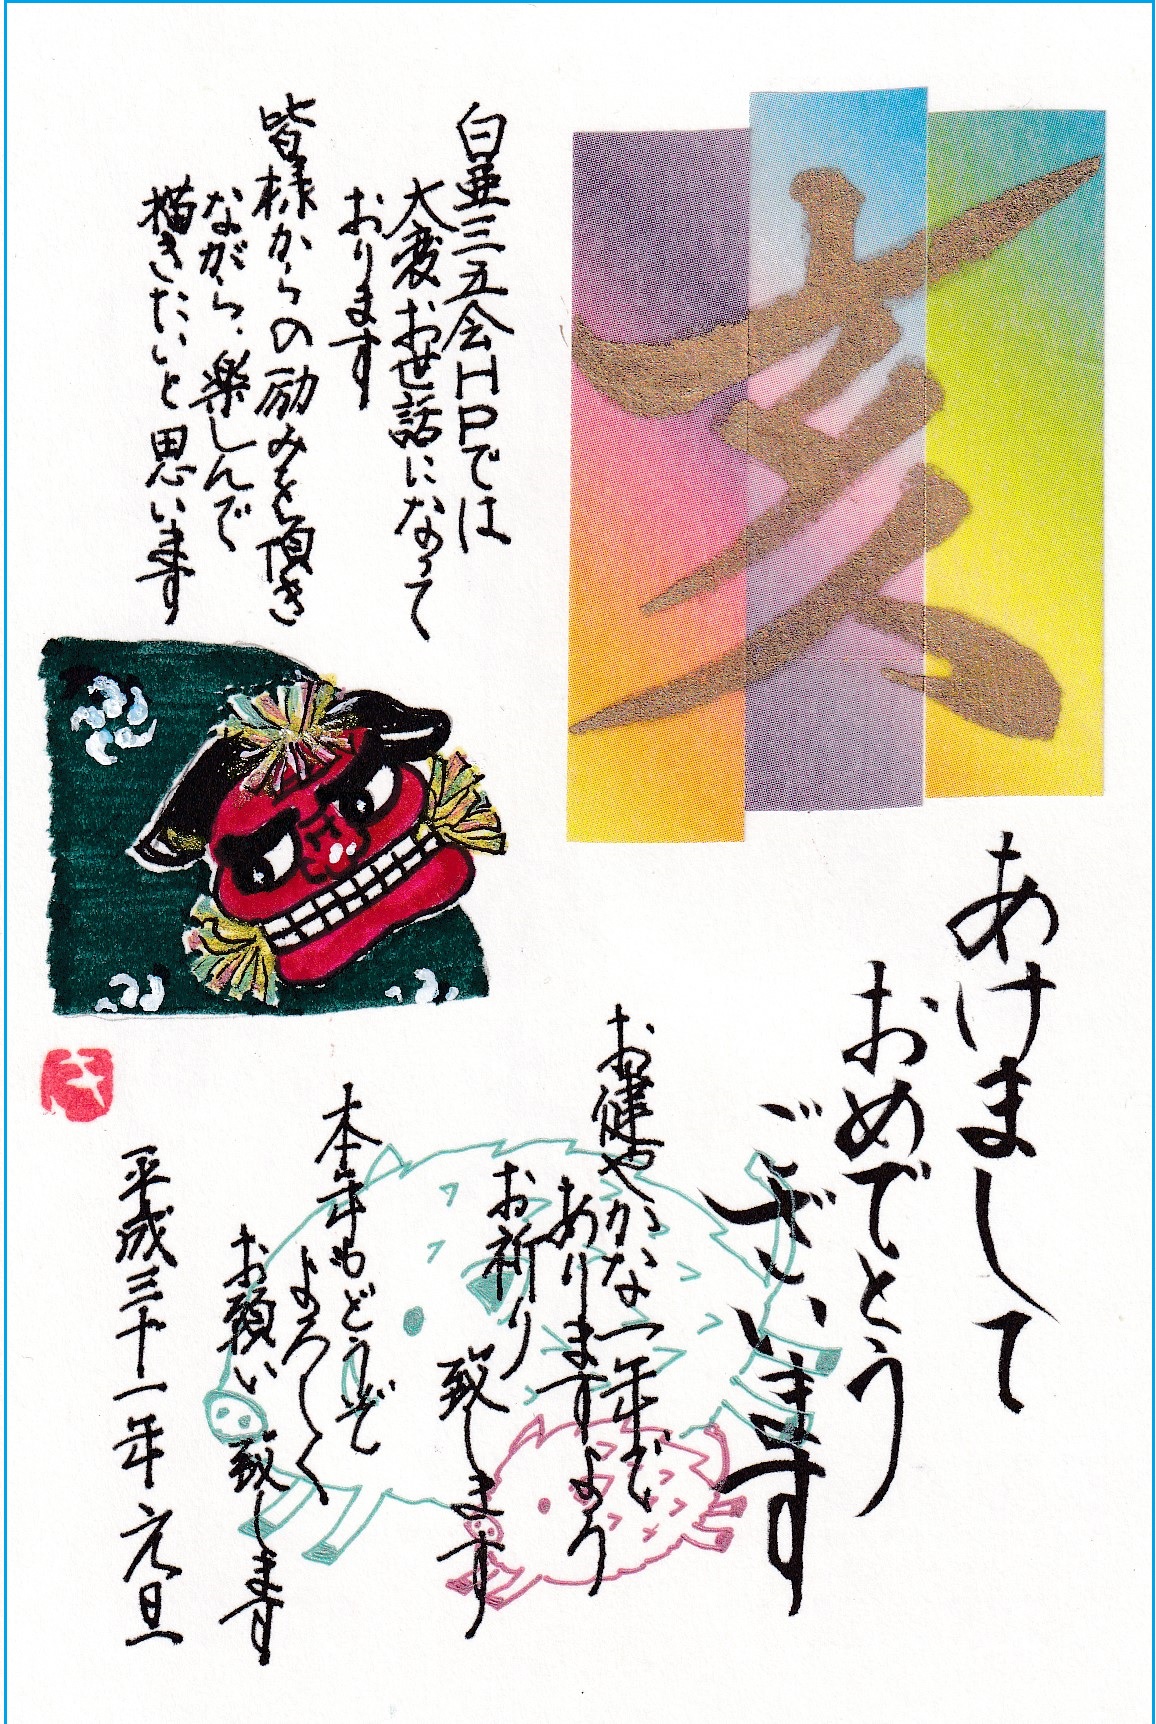 亥
あけまして
おめでとう
ございます
お健やかな一年で
ありますよう
お祈り致します
本年もどうぞ
よろしく
お願い致します
平成三十一年元旦
白亜三五会HPでは
大変お世話になって
おります
皆様からの励みを頂き
ながら、楽しんで
描きたいと思います